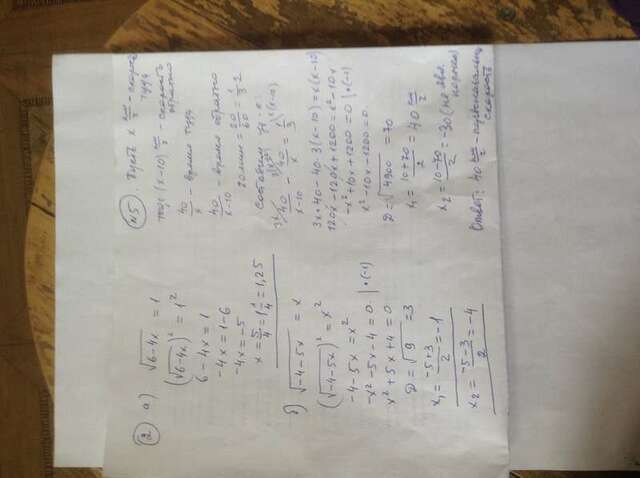 2 а) √6-4x = 1
(√6-4x)² = 1²
6-4x = 1
-4x = 1-6
-4x = -5
x = 5/4 = 1 1/4 = 1,25
б) √-4-5x = x
(√-4-5x)² = x²
-4-5x = x²
-x²-5x-4 = 0 | •(-1)
x²+5x+4 = 0
D = √9 = 3
x₁ = -5+3/2 = -1
x₂ = -5-3/2 = -4
N5. Пусть x км/ч - скорость туда
тогда (x-10) км/ч - скорость
обратно
40/x - время туда
40/x-10 - время обратно
20 мин = 20/60 = 1/3 ч
Составим ур-е:
40/x-10 - 40/x = 1/3
3x•40-40•3(x-10) = x(x-10)
120x-120x+1200 = x²-10x
-x²+10x+1200 = 0 | •(-1)
x²-10x-1200 = 0
D = √4900 = 70
x₁ = 10+70/2 = 40 км/ч
x₂ = 10-70/2 = -30 (не явл.
корнем)
Ответ: 40 км/ч - первоначальная
скорость